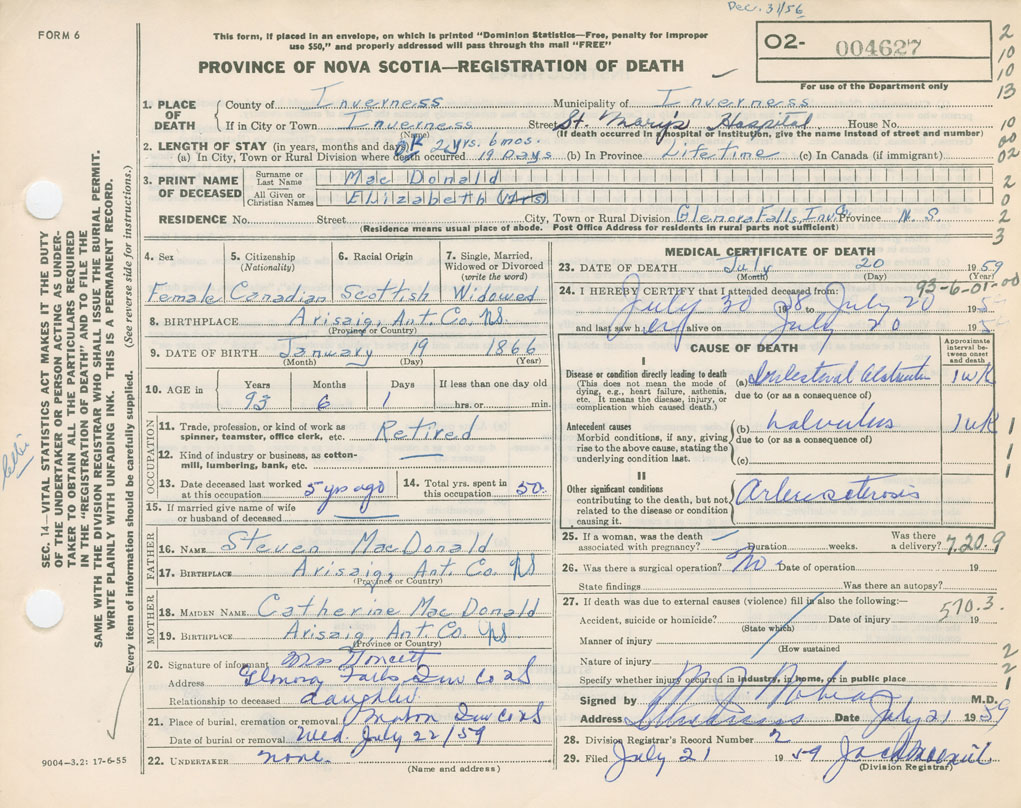 Dec. 31/56
FORM 6
This form, if placed in an envelope, on which is printed "Dominion Statistics—Free, penalty for improper
use $50," and properly addressed will pass through the mail "FREE"
PROVINCE OF NOVA SCOTIA—REGISTRATION OF DEATH
02- 004627
For use of the Department only
2
10
10
13
10
00
02
2
0
2
3
1. PLACE OF DEATH
County of Inverness Municipality of Inverness
If in City or Town Inverness Street St. Mary's Hospital House No.
(Name) (If death occurred in a hospital or institution, give the name instead of street and number)
2. LENGTH OF STAY (in years, months and days) 2 yrs. 6 mos.
(a) In City, Town or Rural Division where death occurred 19 Days (b) In Province Lifetime (c) In Canada (if immigrant)
3. PRINT NAME OF DECEASED
Surname or Last Name MacDonald
All Given or Christian Names Elizabeth (Mrs)
RESIDENCE No. Street City, Town or Rural Division Glenora Falls, Inv. Province N. S.
(Residence means usual place of abode. Post Office Address for residents in rural parts not sufficient)
4. Sex Female
5. Citizenship (Nationality) Canadian
6. Racial Origin Scottish
7. Single, Married, Widowed or Divorced (write the word) Widowed
8. BIRTHPLACE Arisaig, Ant. Co. NS
(Province or Country)
9. DATE OF BIRTH January 19 1866
(Month) (Day) (Year)
10. AGE in Years 93 Months 6 Days 1 If less than one day old hrs. or min.
OCCUPATION
11. Trade, profession, or kind of work as spinner, teamster, office clerk, etc. Retired
12. Kind of industry or business, as cotton-mill, lumbering, bank, etc.
13. Date deceased last worked at this occupation 5 yrs ago
14. Total yrs. spent in this occupation 50
15. If married give name of wife or husband of deceased
FATHER
16. NAME Steven MacDonald
17. BIRTHPLACE Arisaig, Ant. Co. NS
(Province or Country)
MOTHER
18. MAIDEN NAME Catherine MacDonald
19. BIRTHPLACE Arisaig, Ant Co. NS
(Province or Country)
20. Signature of informant Mrs
Address Glenora Falls Inv Co NS
Relationship to deceased daughter
21. Place of burial, cremation or removal Mabou Inv Co NS
Date of burial or removal Wed. July 22/59
22. UNDERTAKER none.
(Name and address)
9004-3.2: 17-6-55
MEDICAL CERTIFICATE OF DEATH
23. DATE OF DEATH July 20 1959
(Month) (Day) (Year)
93-6-01-00
24. I HEREBY CERTIFY that I attended deceased from:
July 30 1958 July 20 195
and last saw her alive on July 20 195
CAUSE OF DEATH
Approximate interval between onset and death
I
Disease or condition directly leading to death
(This does not mean the mode of dying, e.g., heart failure, asthenia, etc. It means the disease, injury, or complication which caused death.)
(a) Intestinal Obstruction 1 wk
due to (or as a consequence of)
Antecedent causes
Morbid conditions, if any, giving rise to the above cause, stating the underlying condition last.
(b) Volvulus 1 wk
due to (or as a consequence of)
(c)
1
1
1
II
Other significant conditions
contributing to the death, but not related to the disease or condition causing it.
Arteriosclerosis
25. If a woman, was the death associated with pregnancy? Duration weeks. Was there a delivery? 7.20.9
26. Was there a surgical operation? No Date of operation 19
State findings Was there an autopsy?
27. If death was due to external causes (violence) fill in also the following:—
Accident, suicide or homicide? Date of injury 19
(State which)
570.3.
Manner of injury
(How sustained
Nature of injury
Specify whether injury occurred in industry, in home, or in public place
2
2
1
Signed by M.D.
Address Inverness Date July 21 1959
28. Division Registrar's Record Number 2
29. Filed July 21 1959
(Division Registrar)
SEC. 14—VITAL STATISTICS ACT MAKES IT THE DUTY
OF THE UNDERTAKER OR PERSON ACTING AS UNDER-
TAKER TO OBTAIN ALL THE PARTICULARS REQUIRED
IN THE "REGISTRATION OF DEATH" AND TO FILE THE
SAME WITH THE DIVISION REGISTRAR WHO SHALL ISSUE THE BURIAL PERMIT.
WRITE PLAINLY WITH UNFADING INK. THIS IS A PERMANENT RECORD.
Every item of information should be carefully supplied. (See reverse side for instructions.)